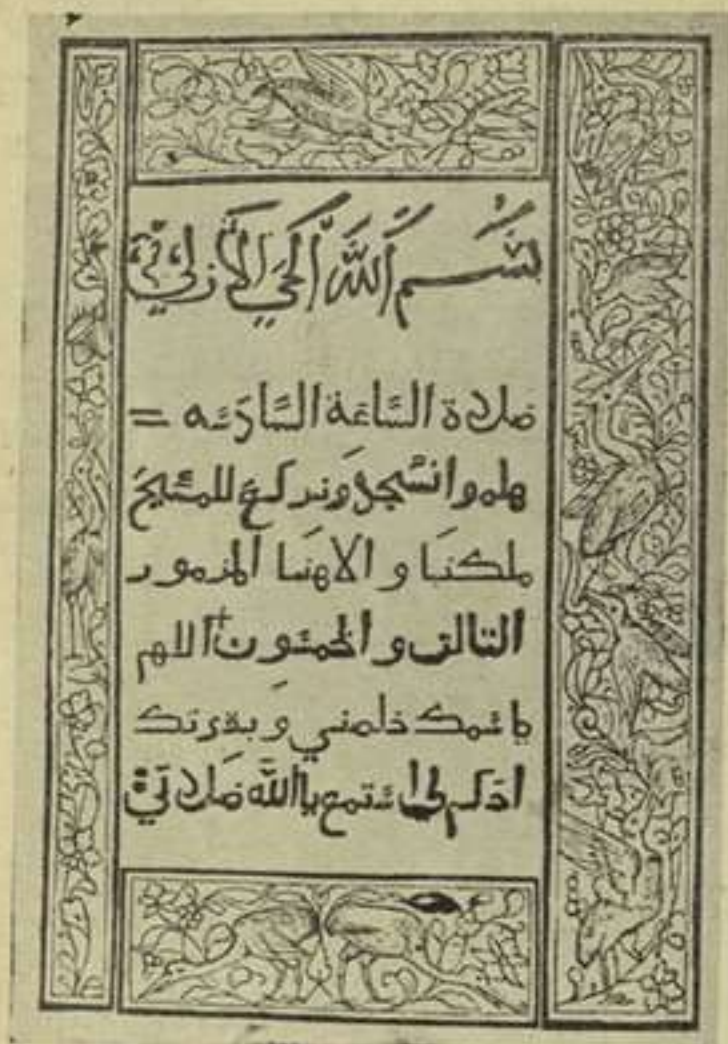 بسم الله الحي الازلي
صلاة الساعة السادسه =
هلموا نسجد ونركع للمسيح
ملكنا و الاهنا المزمور
الثالث و الخمسون اللهم
باسمك خلصني و بقوتك
احكم لي استمع يا الله صلاتي